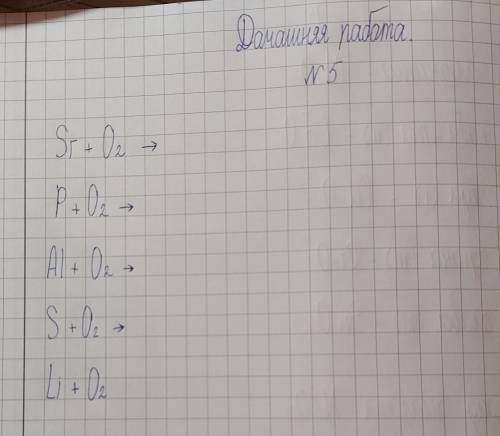 Домашняя работа.
№ 5
Sr + O₂ →
P + O₂ →
Al + O₂ →
S + O₂ →
Li + O₂